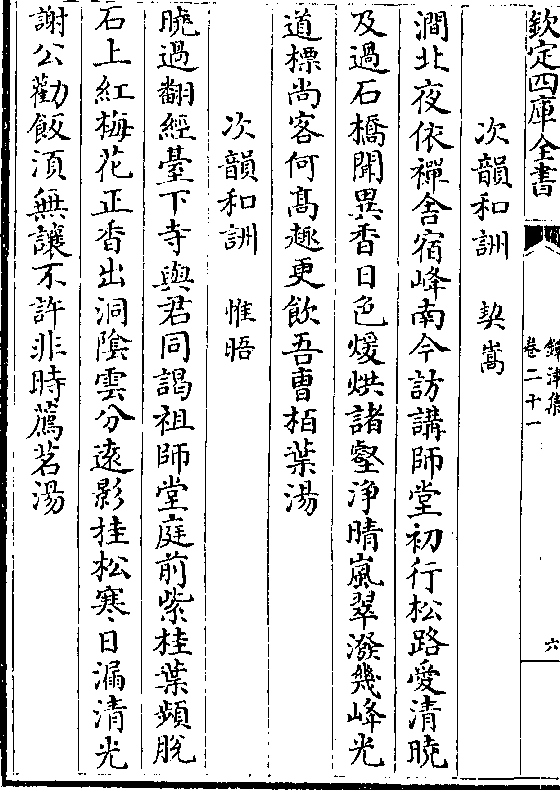 欽定四庫全書
鐔津集
卷二十一
六
次韻和詶　契嵩
澗北夜依禪舍宿峰南今訪講師堂初行松路愛清曉
及過石橋聞異香日色煖烘諸壑淨晴嵐翠潑幾峰光
道標尚客何髙趣更飲吾曹栢葉湯
次韻和詶　惟晤
曉過翻經臺下寺與君同謁祖師堂庭前紫桂葉頻脫
石上紅梅花正香出洞隂雲分遠影挂松寒日漏清光
謝公勸飯須無讓不許非時薦茗湯